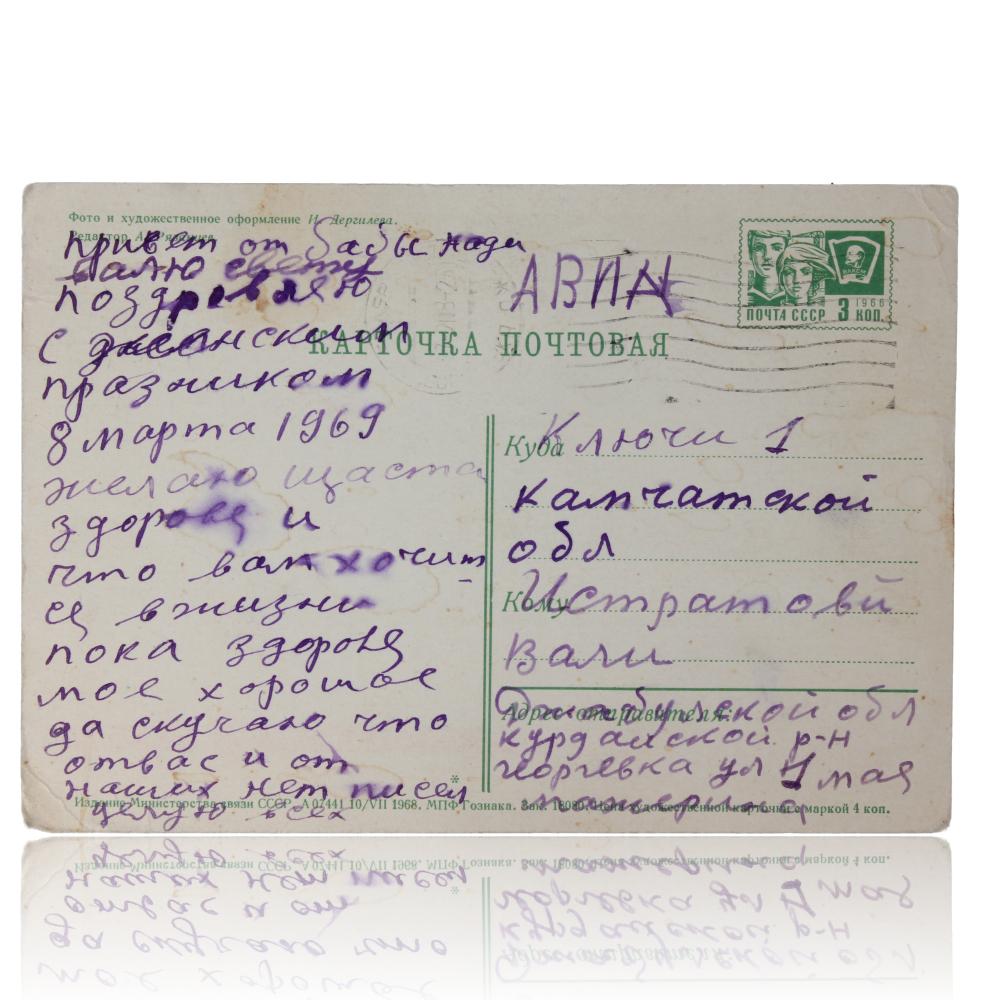 Фото и художественное оформление И. Дергилева.
Редактор
привет от бабы нади
валю свету
поздровляю
с женским
празником
8 марта 1969
желаю щаста
здоровя и
что вам хочит
ся вжизни
пока здоровя
мое хорошое
да скучаю что
отвас и от
наших нет писем
целую всех
АВИА
ПОЧТА СССР 3 КОП.
1966
ВЛКСМ
КАРТОЧКА ПОЧТОВАЯ
Куда Ключи 1
камчатской
обл
Кому Истратовй
Вали
Адрес отправителя:
Джамбулской обл
курдайской р-н
георгевка ул 1 мая
Издание Министерства связи СССР. А 07441 10/VII 1968. МПФ Гознака. Зак. 18080. Цена художественной карточки с маркой 4 коп.